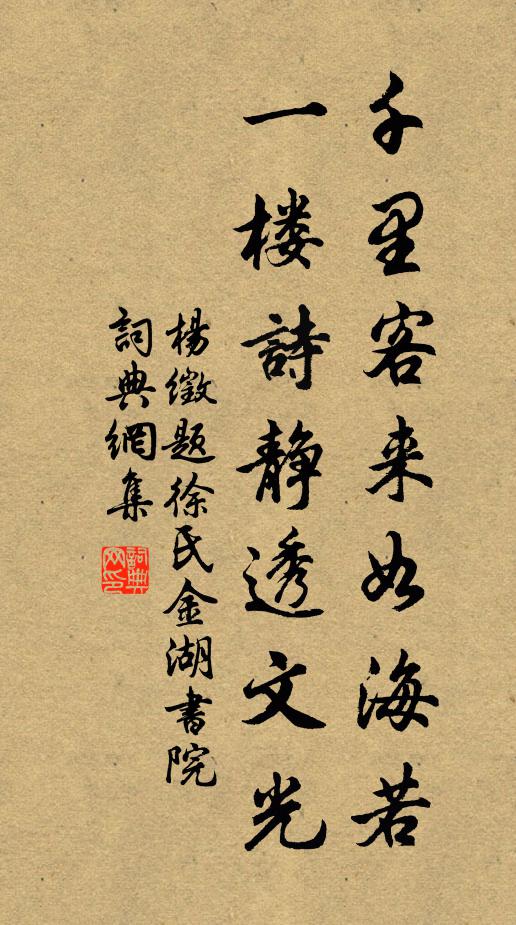 千里客来如海若
一楼詩静透文光
楊徵題徐氏金湖書院
詞典網集
詞典
网印